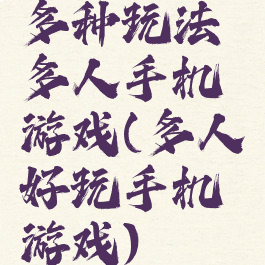 多种玩法
多人手机
游戏(多人
好玩手机
游戏)